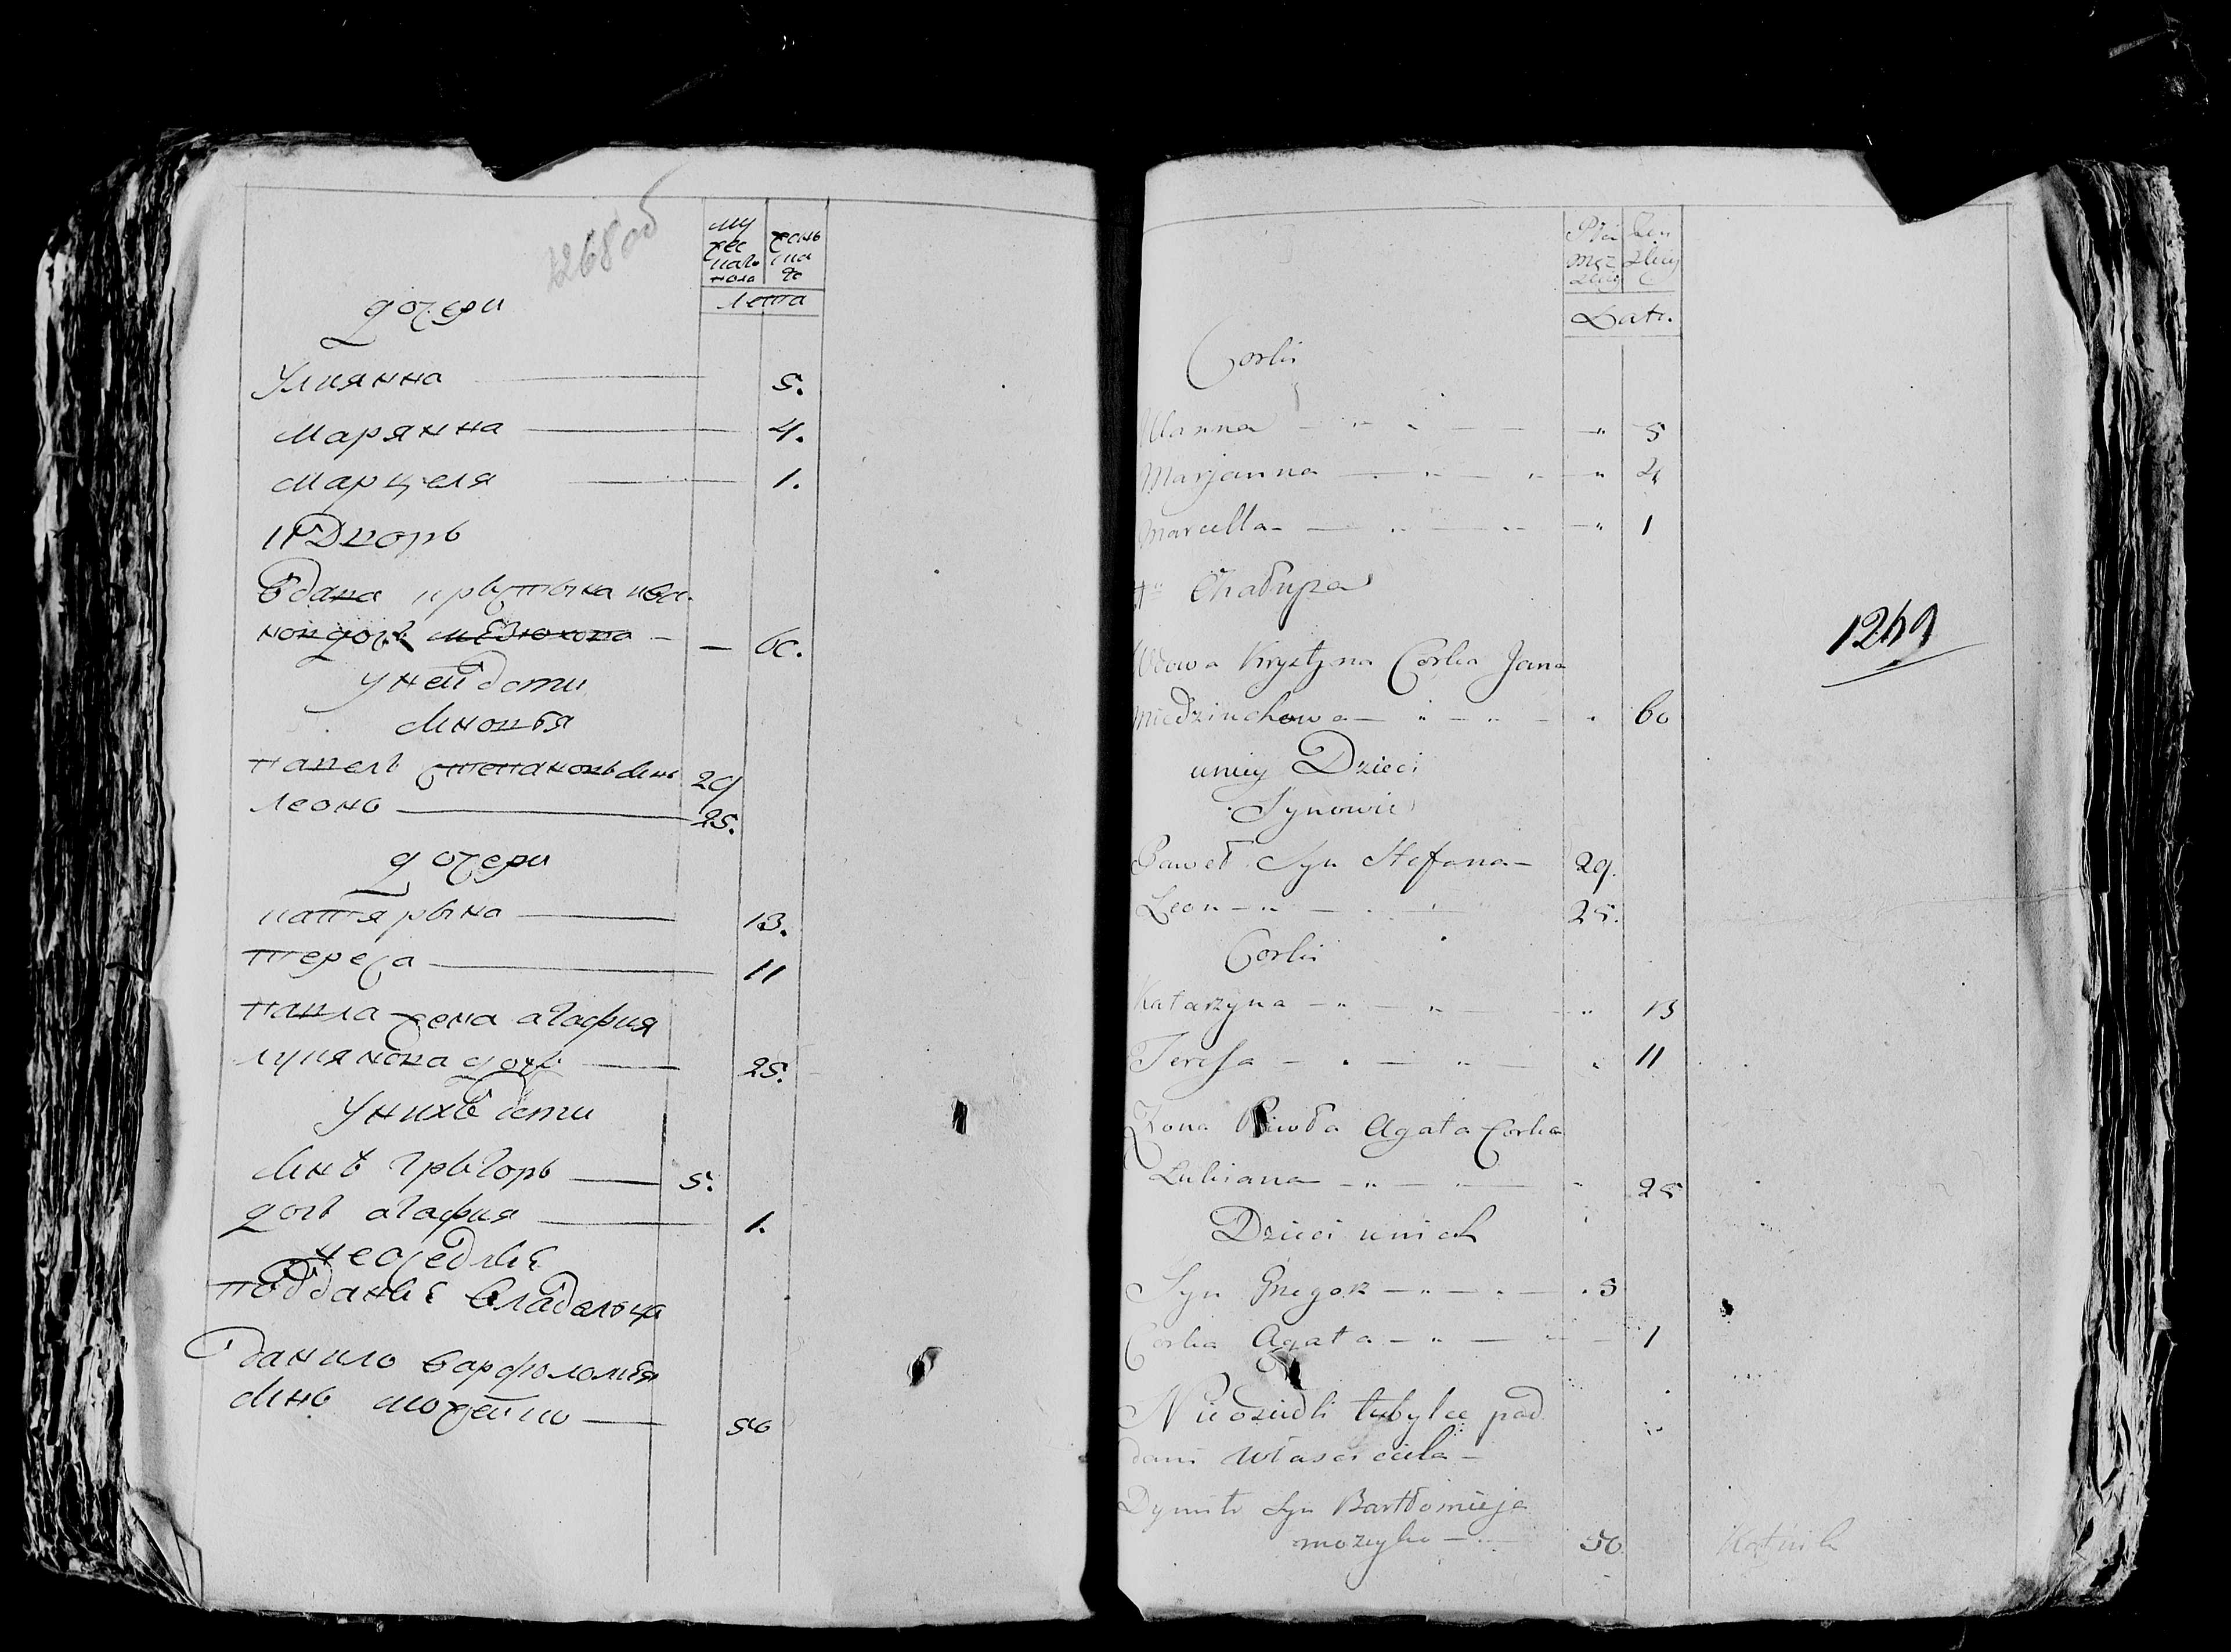 1268об
му
жес
каго
пола
женс
ка
го
лета
дочери
Улиянна 5.
Марянна 4.
Марцеля 1.
вдова крыстына ива
нов дочь 60.
у ней дети
сыновья
павел степанов сынъ 29
леонъ 25.
дочери
катярына 13.
тереса 11
павла жена агафия
лукянова дочь 25.
у них дети
сынъ грыгоръ 5.
дочь агафия 1.
неоседлые
подданые владельца
данило варфоломея
сынъ можейко 56
Płci
męz
Zen
Latr.
Corki
Ulanna 5
Marjanna 4
Marcella 1
Chałupa
Wdowa Krystyna Corka Jana
Miedziuchowa 60
u niey Dzieci
Synowie
Paweł Syn Stefana 29.
Leon 25.
Corki
Katarzyna 13
Teressa 11
Zona Pawła Agata Corka
Lukiana 25
Dzieci u nich
Syn Gregor 5
Corka Agata 1
Nieosiedli tubylce pod
dani własciciela
Syn Bartłomieja
mozeyko 56
1269